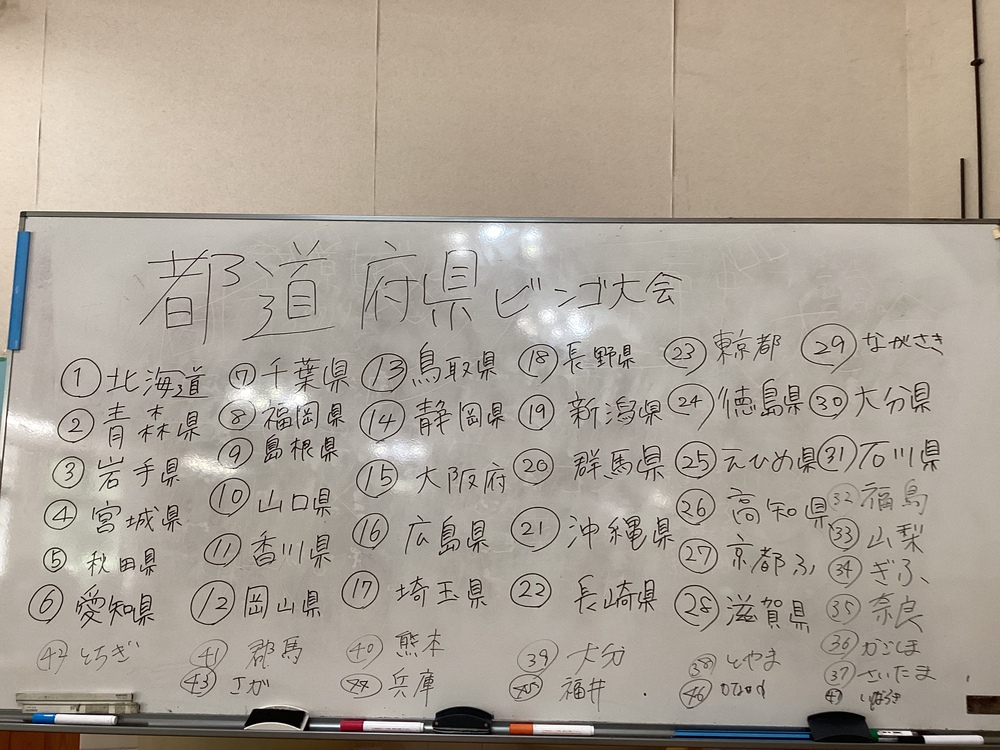 都道府県ビンゴ大会
① 北海道
② 青森県
③ 岩手県
④ 宮城県
⑤ 秋田県
⑥ 愛知県
⑦ 千葉県
⑧ 福岡県
⑨ 島根県
⑩ 山口県
⑪ 香川県
⑫ 岡山県
⑬ 鳥取県
⑭ 静岡県
⑮ 大阪府
⑯ 広島県
⑰ 埼玉県
⑱ 長野県
⑲ 新潟県
⑳ 群馬県
㉑ 沖縄県
㉒ 長崎県
㉓ 東京都
㉔ 徳島県
㉕ えひめ県
㉖ 高知県
㉗ 京都ふ
㉘ 滋賀県
㉙ ながさき
㉚ 大分県
㉛ 石川県
㉜ 福島
㉝ 山梨
㉞ ぎふ
㉟ 奈良
㊱ かごしま
㊲ さいたま
㊳ とやま
㊴ 大分
㊵ 熊本
㊶ 郡馬
㊷ とちぎ
㊸ さが
㊹ 兵庫
㊺ 福井
㊻